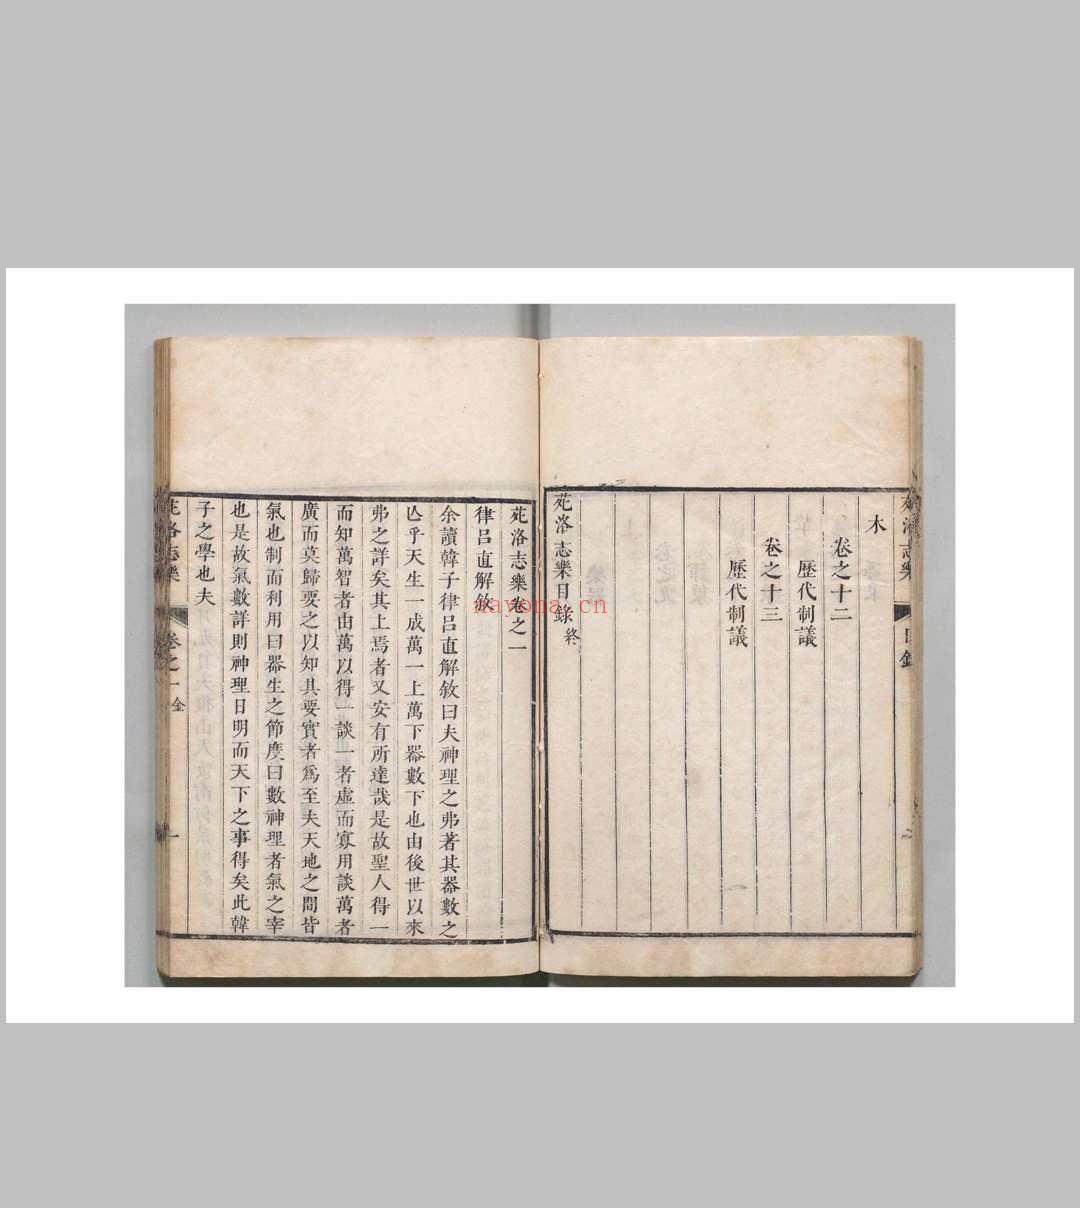 苑洛志樂
目錄
木
卷之十二
歷代制議
卷之十三
歷代制議
苑洛志樂目錄終
苑洛志樂卷之一
律呂直解敘
余讀韓子律呂直解敘曰夫神理之弗著其器數之
亾乎天生一成萬一上萬下器數下也由後世以來
弗之詳矣其上焉者又安有所達哉是故聖人得一
而知萬智者由萬以得一談一者虛而寡用談萬者
廣而莫歸要之以知其要實者爲至夫天地之間皆
氣也制而利用曰器生之節度曰數神理者氣之宰
也是故氣數詳則神理日明而天下之事得矣此韓
子之學也夫
苑洛志樂
卷之一
金
一
nayona.cn